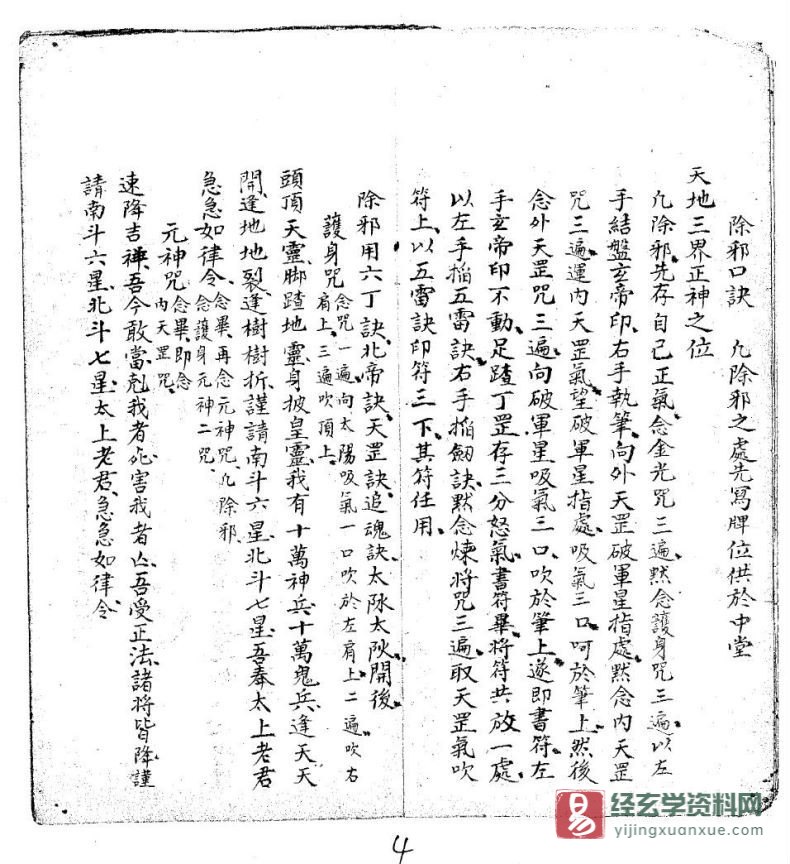 除邪口訣　凢除邪之處先寫牌位供於中堂
天地三界正神之位
凢除邪、先存自己正氣、念金光咒三遍、黙念護身咒三遍、以左
手結盤玄帝印、右手執筆、向外天罡破軍星指處、黙念內天罡
咒三遍、運內天罡氣、望破軍星指處、吸氣三口、呵於筆上、然後
念外天罡咒三遍、向破軍星吸氣三口、吹於筆上、遂即書符、左
手玄帝印不動、足踏丁罡、存三分怒氣、書符畢、將符共放一處、
以左手掐五雷訣、右手掐劒訣、黙念煉將咒三遍、取天罡氣吹
符上、以五雷訣印符三下、其符任用、
除邪用六丁訣、北帝訣、天罡訣、追魂訣、太
開後、
護身咒 念咒一遍、向太陽吸氣一口、吹於左肩上、二遍吹右
肩上、三遍吹頂上、
頭頂天靈、脚踏地靈、身披皇靈、我有十萬神兵、十萬鬼兵、逢天天
開、逢地地裂、逢樹樹折、謹請南斗六星、北斗七星、吾奉太上老君
急急如律令、念畢、再念元神咒、凢除邪、
念護身元神二咒、
元神咒 念畢、即念
內天罡咒、
速降吉神、吾今敢當、剋我者死、害我者亾、吾受正法、諸將皆降、謹
請南斗六星、北斗七星、太上老君、急急如律令、
4
易
经玄学资料网
yijingxuanxue.com